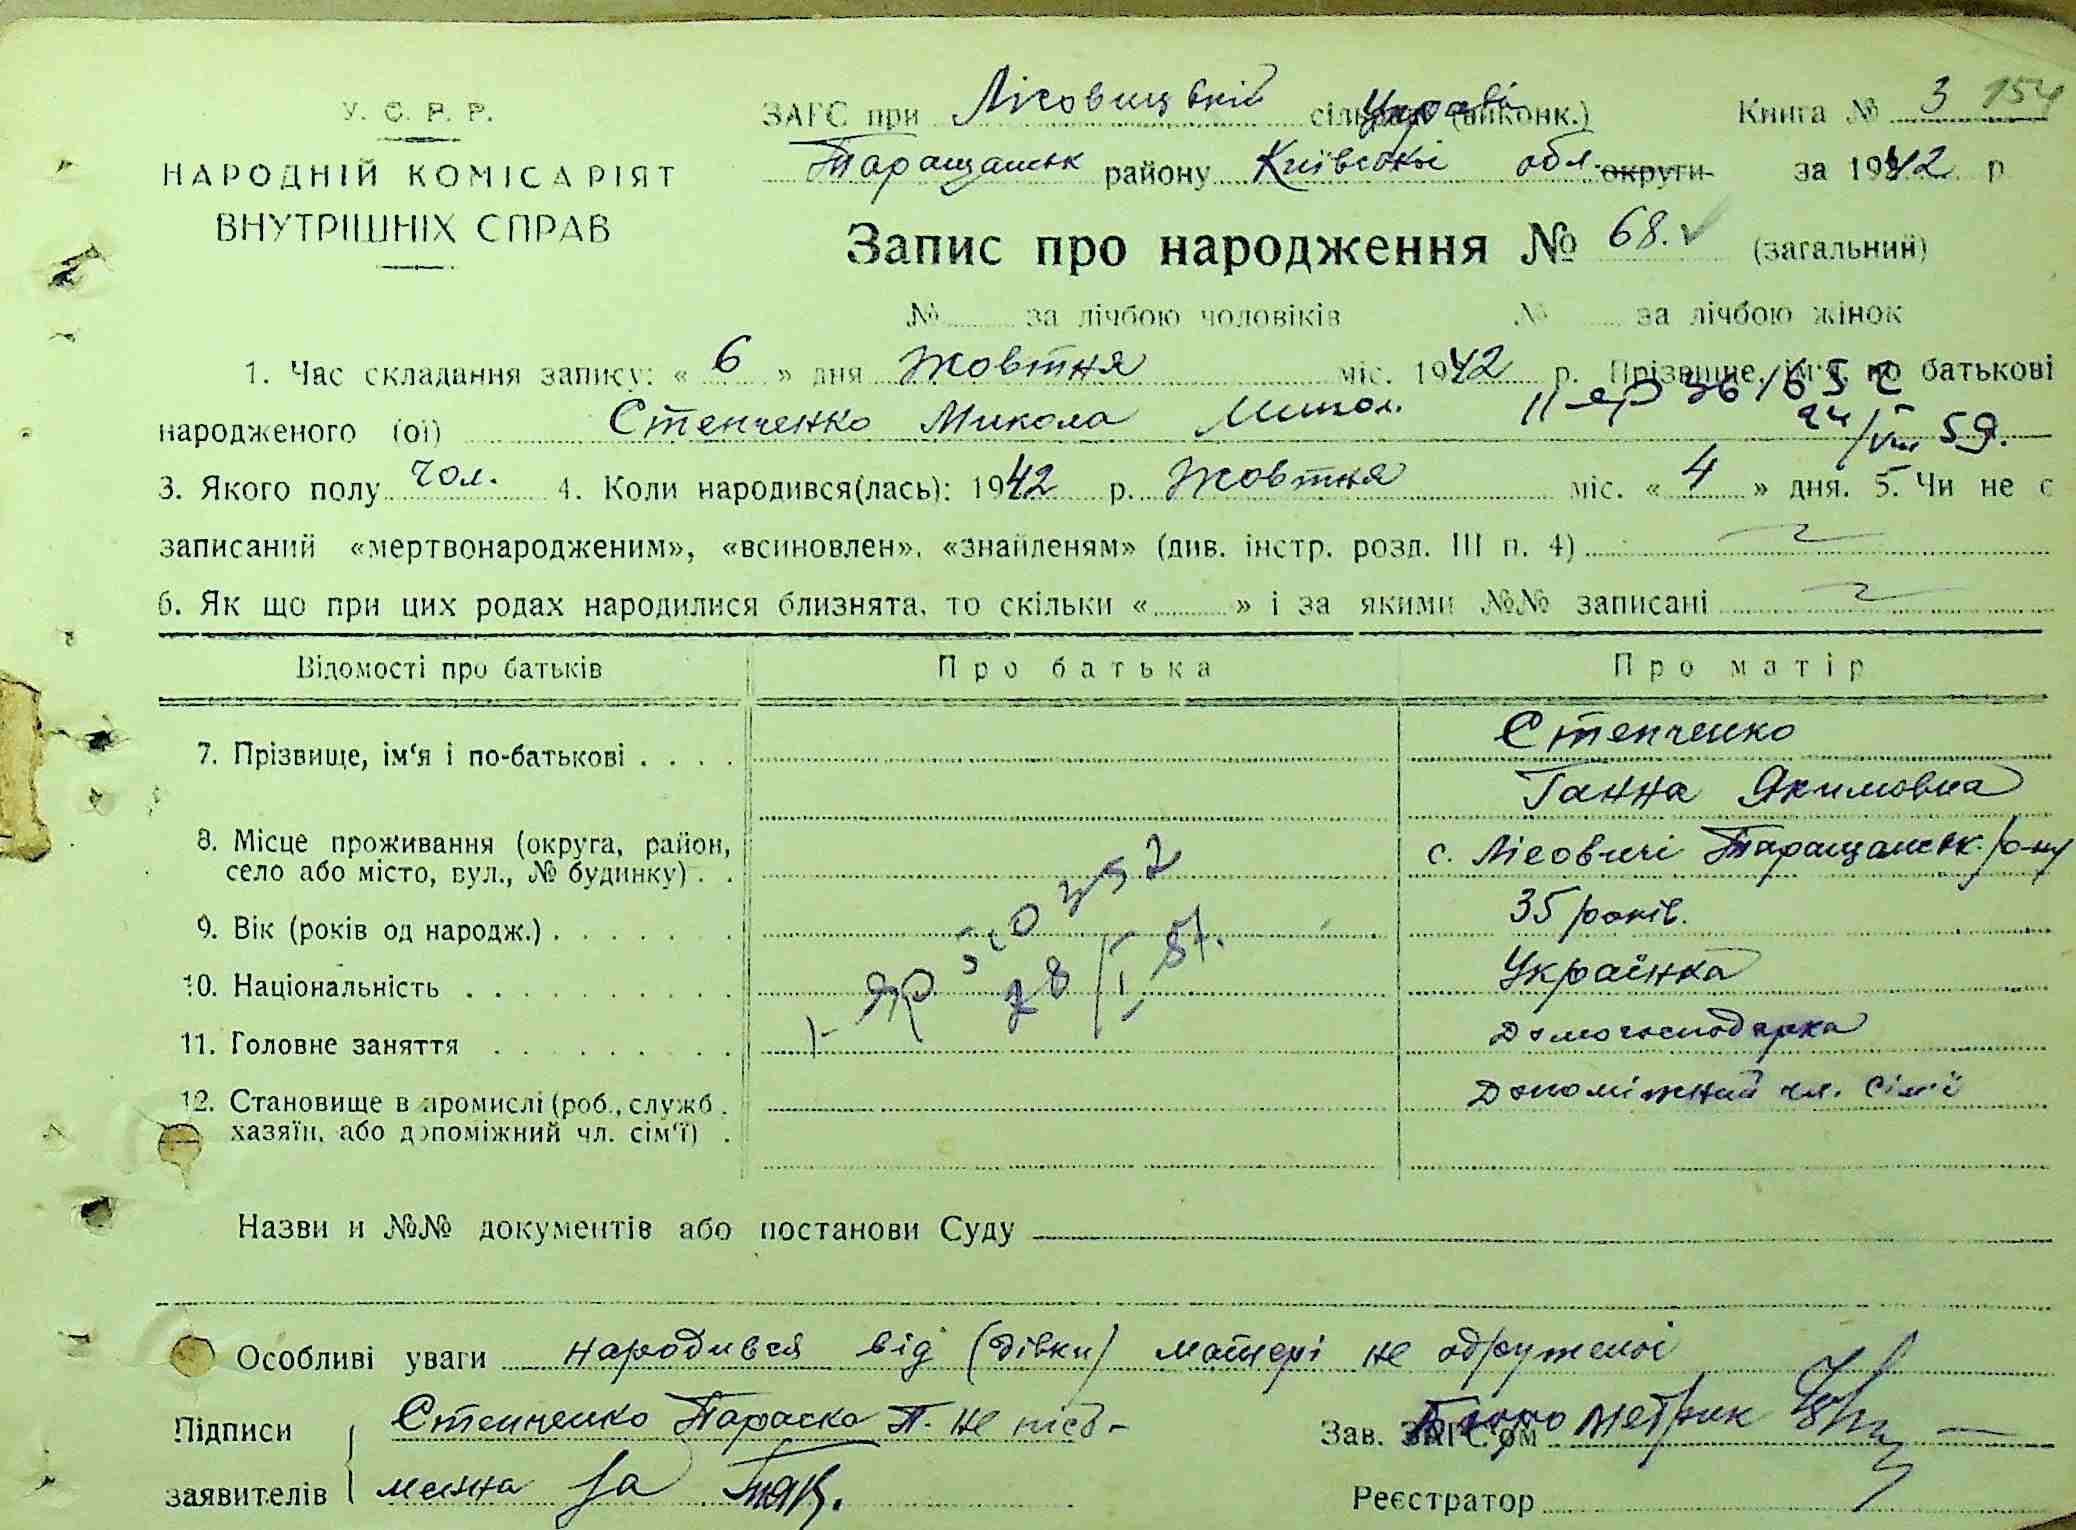 У. С. Р. Р.
НАРОДНІЙ КОМІСАРІЯТ
ВНУТРІШНІХ СПРАВ
ЗАГС при Лісовицькій сільрад (виконк.) Управі Книга № 3 154
Таращанськ району Київської обл. округи за 1942 р
Запис про народження № 68. (загальний)
№ за лічбою чоловіків № за лічбою жінок
1. Час складання запису: « 6 » дня Жовтня міс. 1942 р. Прізвище, ім'я, по батькові
народженого (ої) Степченко Микола Микол. II ЯР 24/VIII 59.
3. Якого полу чол. 4. Коли народився(лась): 1942 р. Жовтня міс. « 4 » дня. 5. Чи не є
записаний «мертвонародженим», «всиновлен», «знайденям» (див. інстр. розд. III п. 4)
6. Як що при цих родах народилися близнята, то скільки « » і за якими №№ записані
Відомості про батьків Про батька Про матір
7. Прізвище, ім'я і по-батькові Степченко
Ганна Якимовна
8. Місце проживання (округа, район, с. Лісовичі Таращанськ. р-ну
село або місто, вул., № будинку)
9. Вік (років од народж.) 35 років.
10. Національність Українка
11. Головне заняття Домогосподарка
12. Становище в промислі (роб., служб. Допоміжний чл. сім'ї
хазяїн, або допоміжний чл. сім'ї)
Назви и №№ документів або постанови Суду
Особливі уваги народився від (дівки) матері не одруженої
Підписи Степченко Параска П. не пісь-
Зав. ЗАГС'ом Бюро метрик
заявителів менна за
Реєстратор